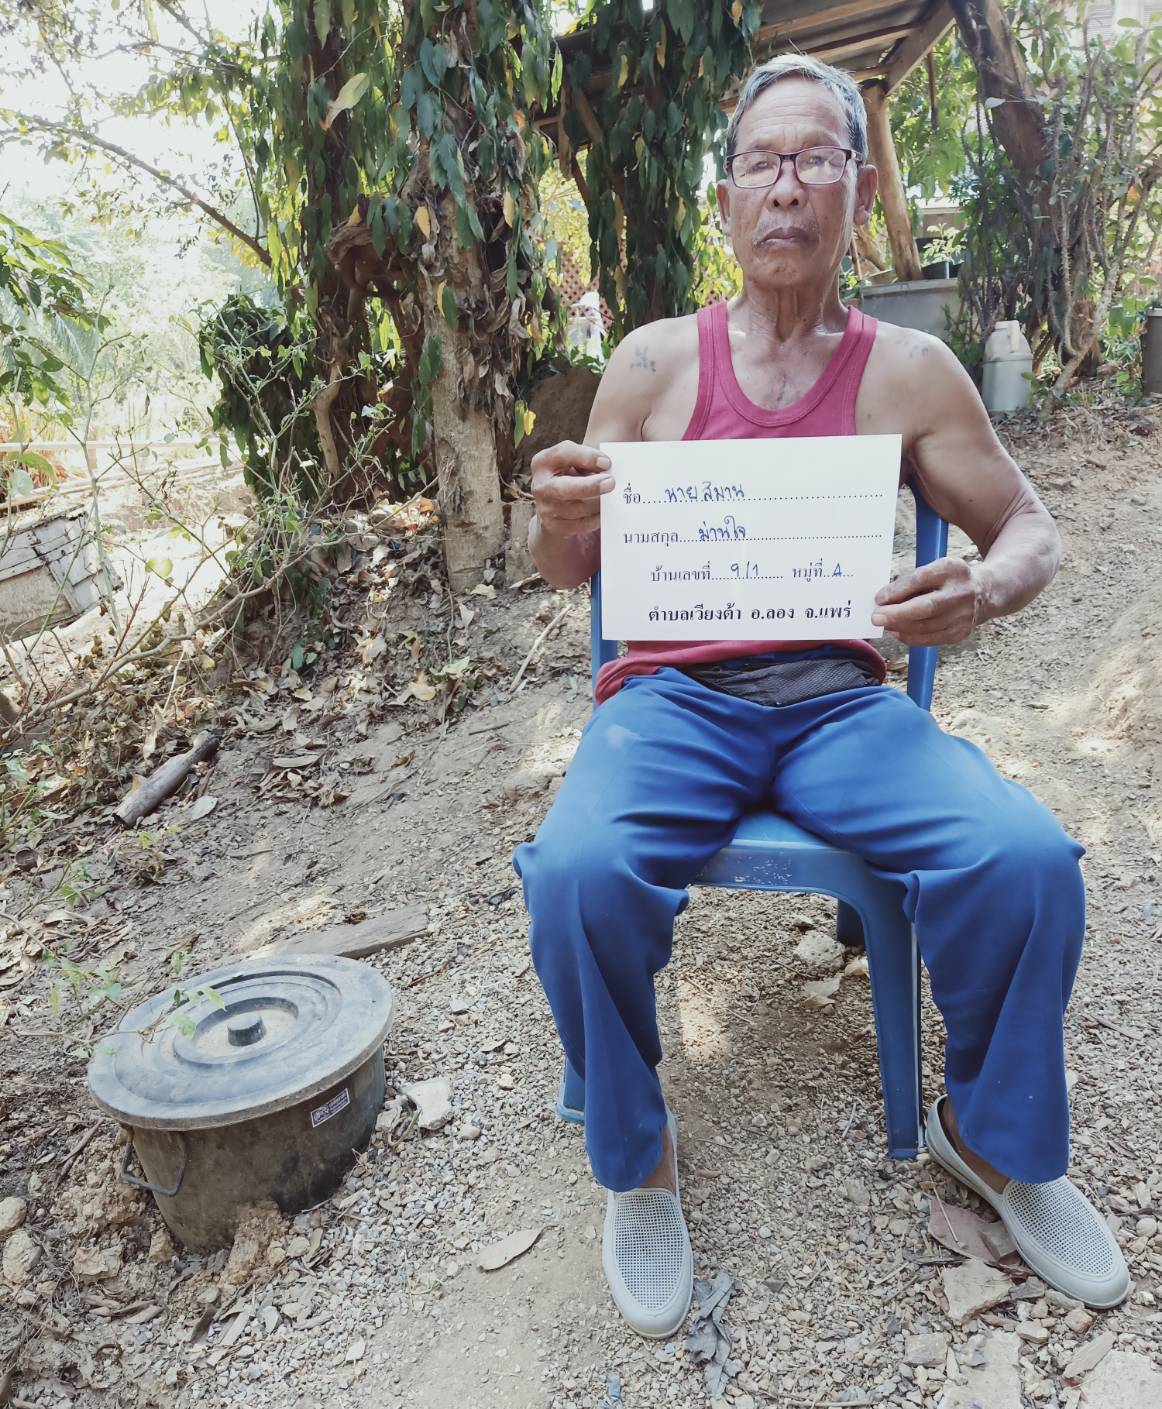 ชื่อ.....นาย สีมาน..............................
นามสกุล.....ม่านใจ..............................
บ้านเลขที่...9/1...... หมู่ที่..4...
ตำบลเวียงต้า อ.ลอง จ.แพร่